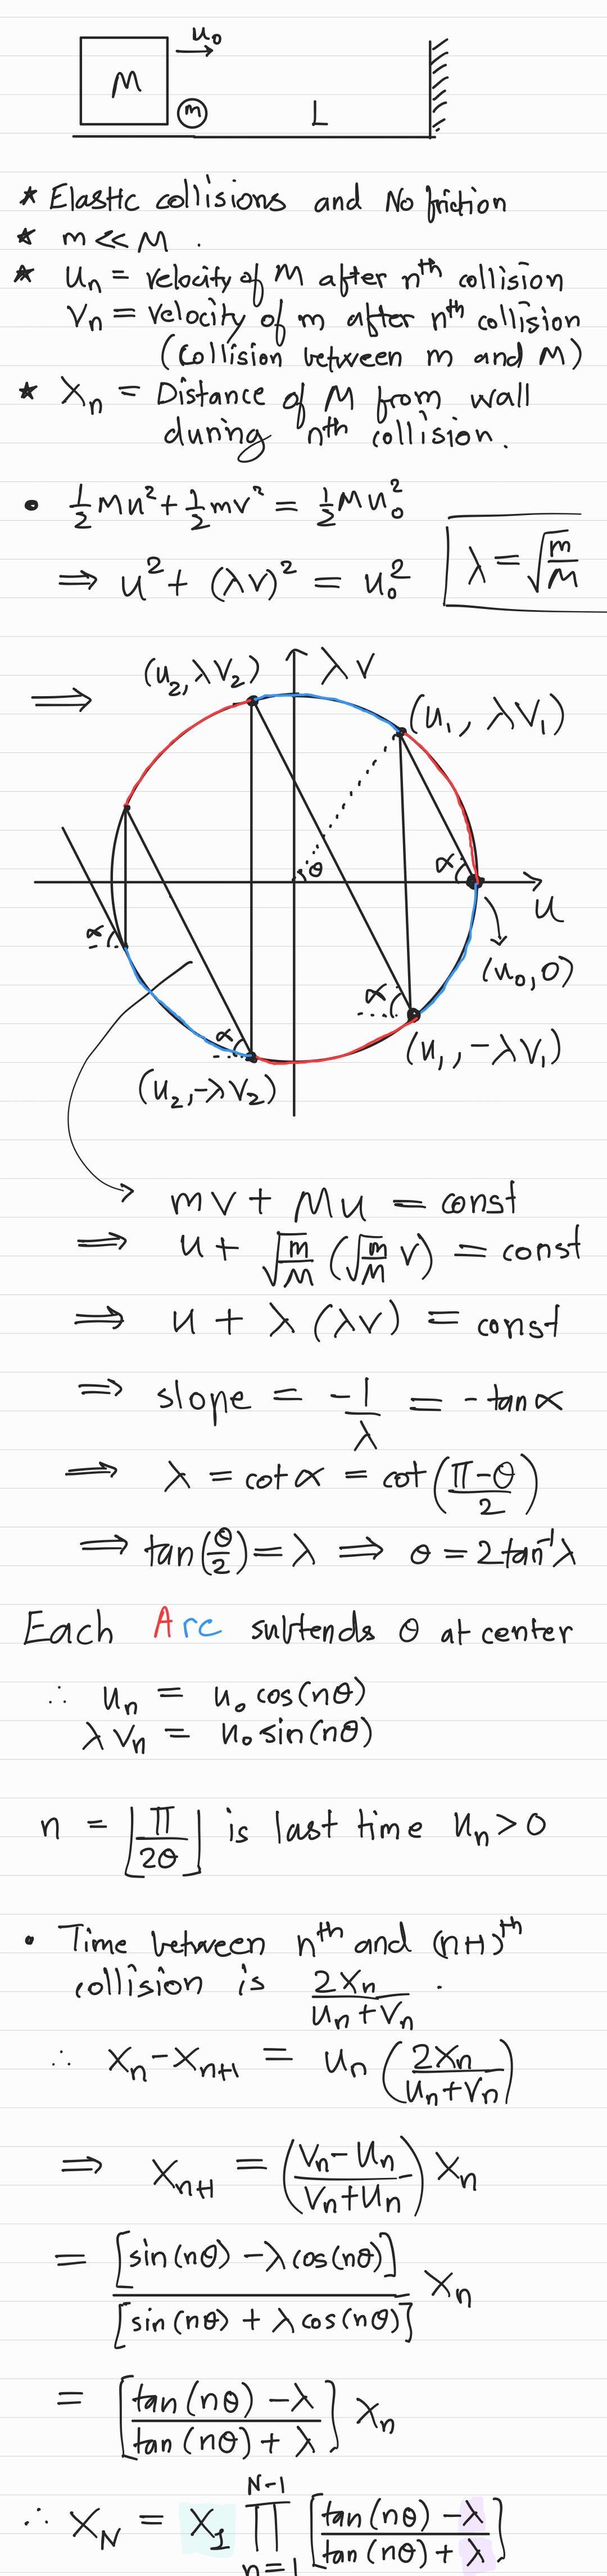 u₀
M
m
L
★ Elastic collisions and No friction
★ m << M .
★ uₙ = velocity of M after nᵗʰ collision
vₙ = velocity of m after nᵗʰ collision
(Collision between m and M)
★ Xₙ = Distance of M from wall
during nᵗʰ collision.
• 1/2 Mu² + 1/2 mv² = 1/2 Mu₀²
⟹ u² + (λv)² = u₀²
λ = √(m/M)
(u₂, λv₂)
λv
⟹
(u₁, λv₁)
θ
α
u
α
(u₀, 0)
α
α
(u₁, -λv₁)
(u₂, -λv₂)
mv + Mu = const
⟹ u + √(m/M) (√(m/M) v) = const
⟹ u + λ(λv) = const
⟹ slope = -1/λ = -tanα
⟹ λ = cotα = cot((π-θ)/2)
⟹ tan(θ/2) = λ ⟹ θ = 2tan⁻¹λ
Each Arc subtends θ at center
∴ uₙ = u₀ cos(nθ)
λvₙ = u₀ sin(nθ)
n = ⌊π/2θ⌋ is last time uₙ > 0
• Time between nᵗʰ and (n+1)ᵗʰ
collision is 2Xₙ/(uₙ+vₙ) .
∴ Xₙ - Xₙ₊₁ = uₙ (2Xₙ/(uₙ+vₙ))
⟹ Xₙ₊₁ = ((vₙ-uₙ)/(vₙ+uₙ)) Xₙ
= [sin(nθ) - λcos(nθ)]/[sin(nθ) + λcos(nθ)] Xₙ
= [(tan(nθ) - λ)/(tan(nθ) + λ)] Xₙ
∴ X_N = X₁ ∏_{n=1}^{N-1} [(tan(nθ) - λ)/(tan(nθ) + λ)]